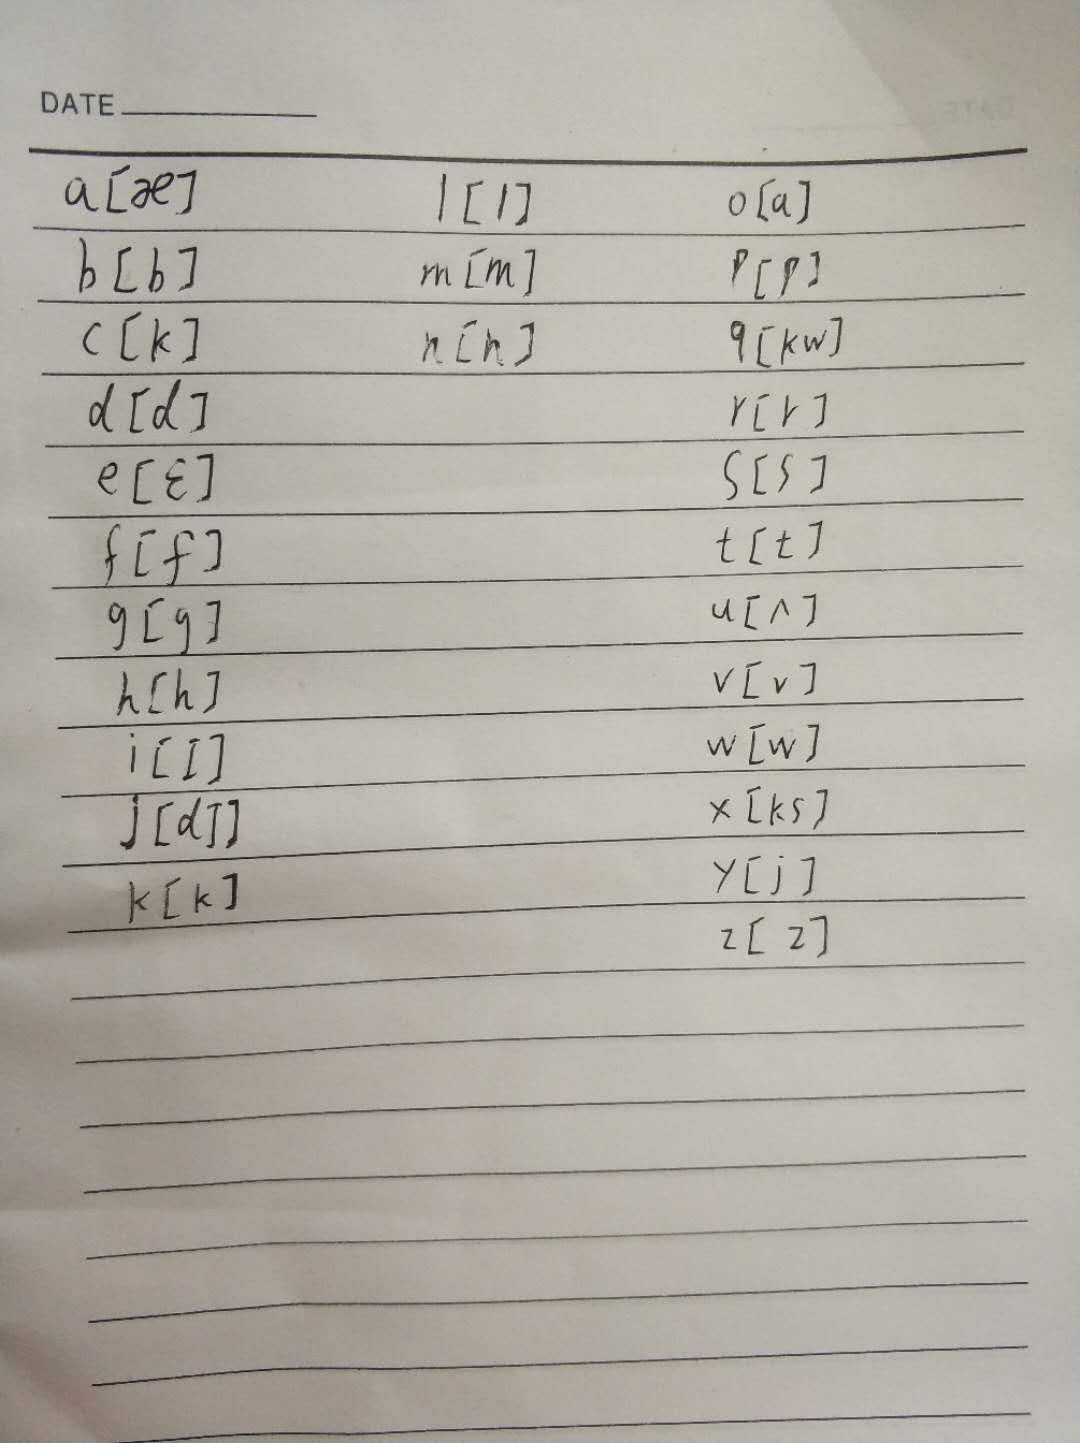 DATE
a[æ]
b[b]
c[k]
d[d]
e[ɛ]
f[f]
g[g]
h[h]
i[I]
j[dʃ]
k[k]
l[l]
m[m]
n[n]
o[a]
p[p]
q[kw]
r[r]
s[s]
t[t]
u[ʌ]
v[v]
w[w]
x[ks]
y[j]
z[z]